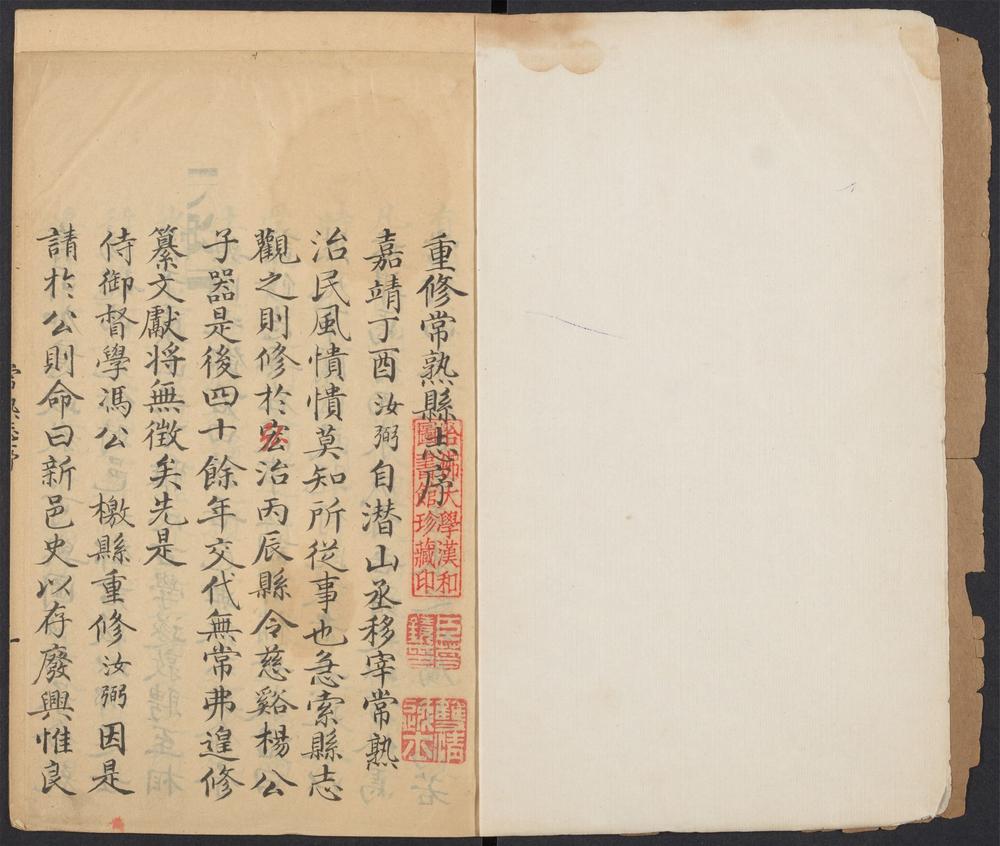 重修常熟縣志序
嘉靖丁酉汝弼自潜山丞移宰常熟
治民風憒憒莫知所從事也急索縣志
觀之則修於宏治丙辰縣令慈谿楊公
子器是後四十餘年交代無常弗遑修
纂文獻将無徵矣先是
侍御督學馮公檄縣重修汝弼因是
請於公則命曰新邑史以存廢興惟良
哈佛大學漢和
圖書館珍藏印
一